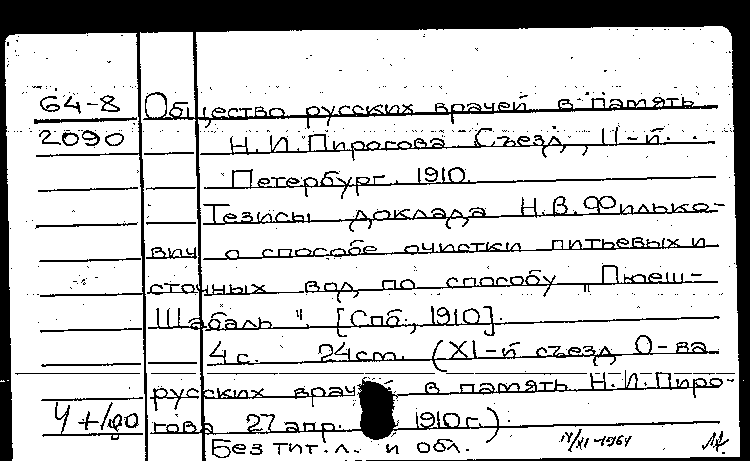 64-8 Общество русских врачей в память
2090 Н.И.Пирогова Съезд, 11-й.
Петербург. 1910.
Тезисы доклада Н.В.Филько-
вич о способе очистки питьевых и
сточных вод по способу "Пюеш-
Шабаль". [Спб., 1910].
4 с. 24 cm. (XI-й съезд О-ва
русских врачей в память Н.И.Пиро-
гова 27 апр. 1910г.).
Без тит.л. и обл.